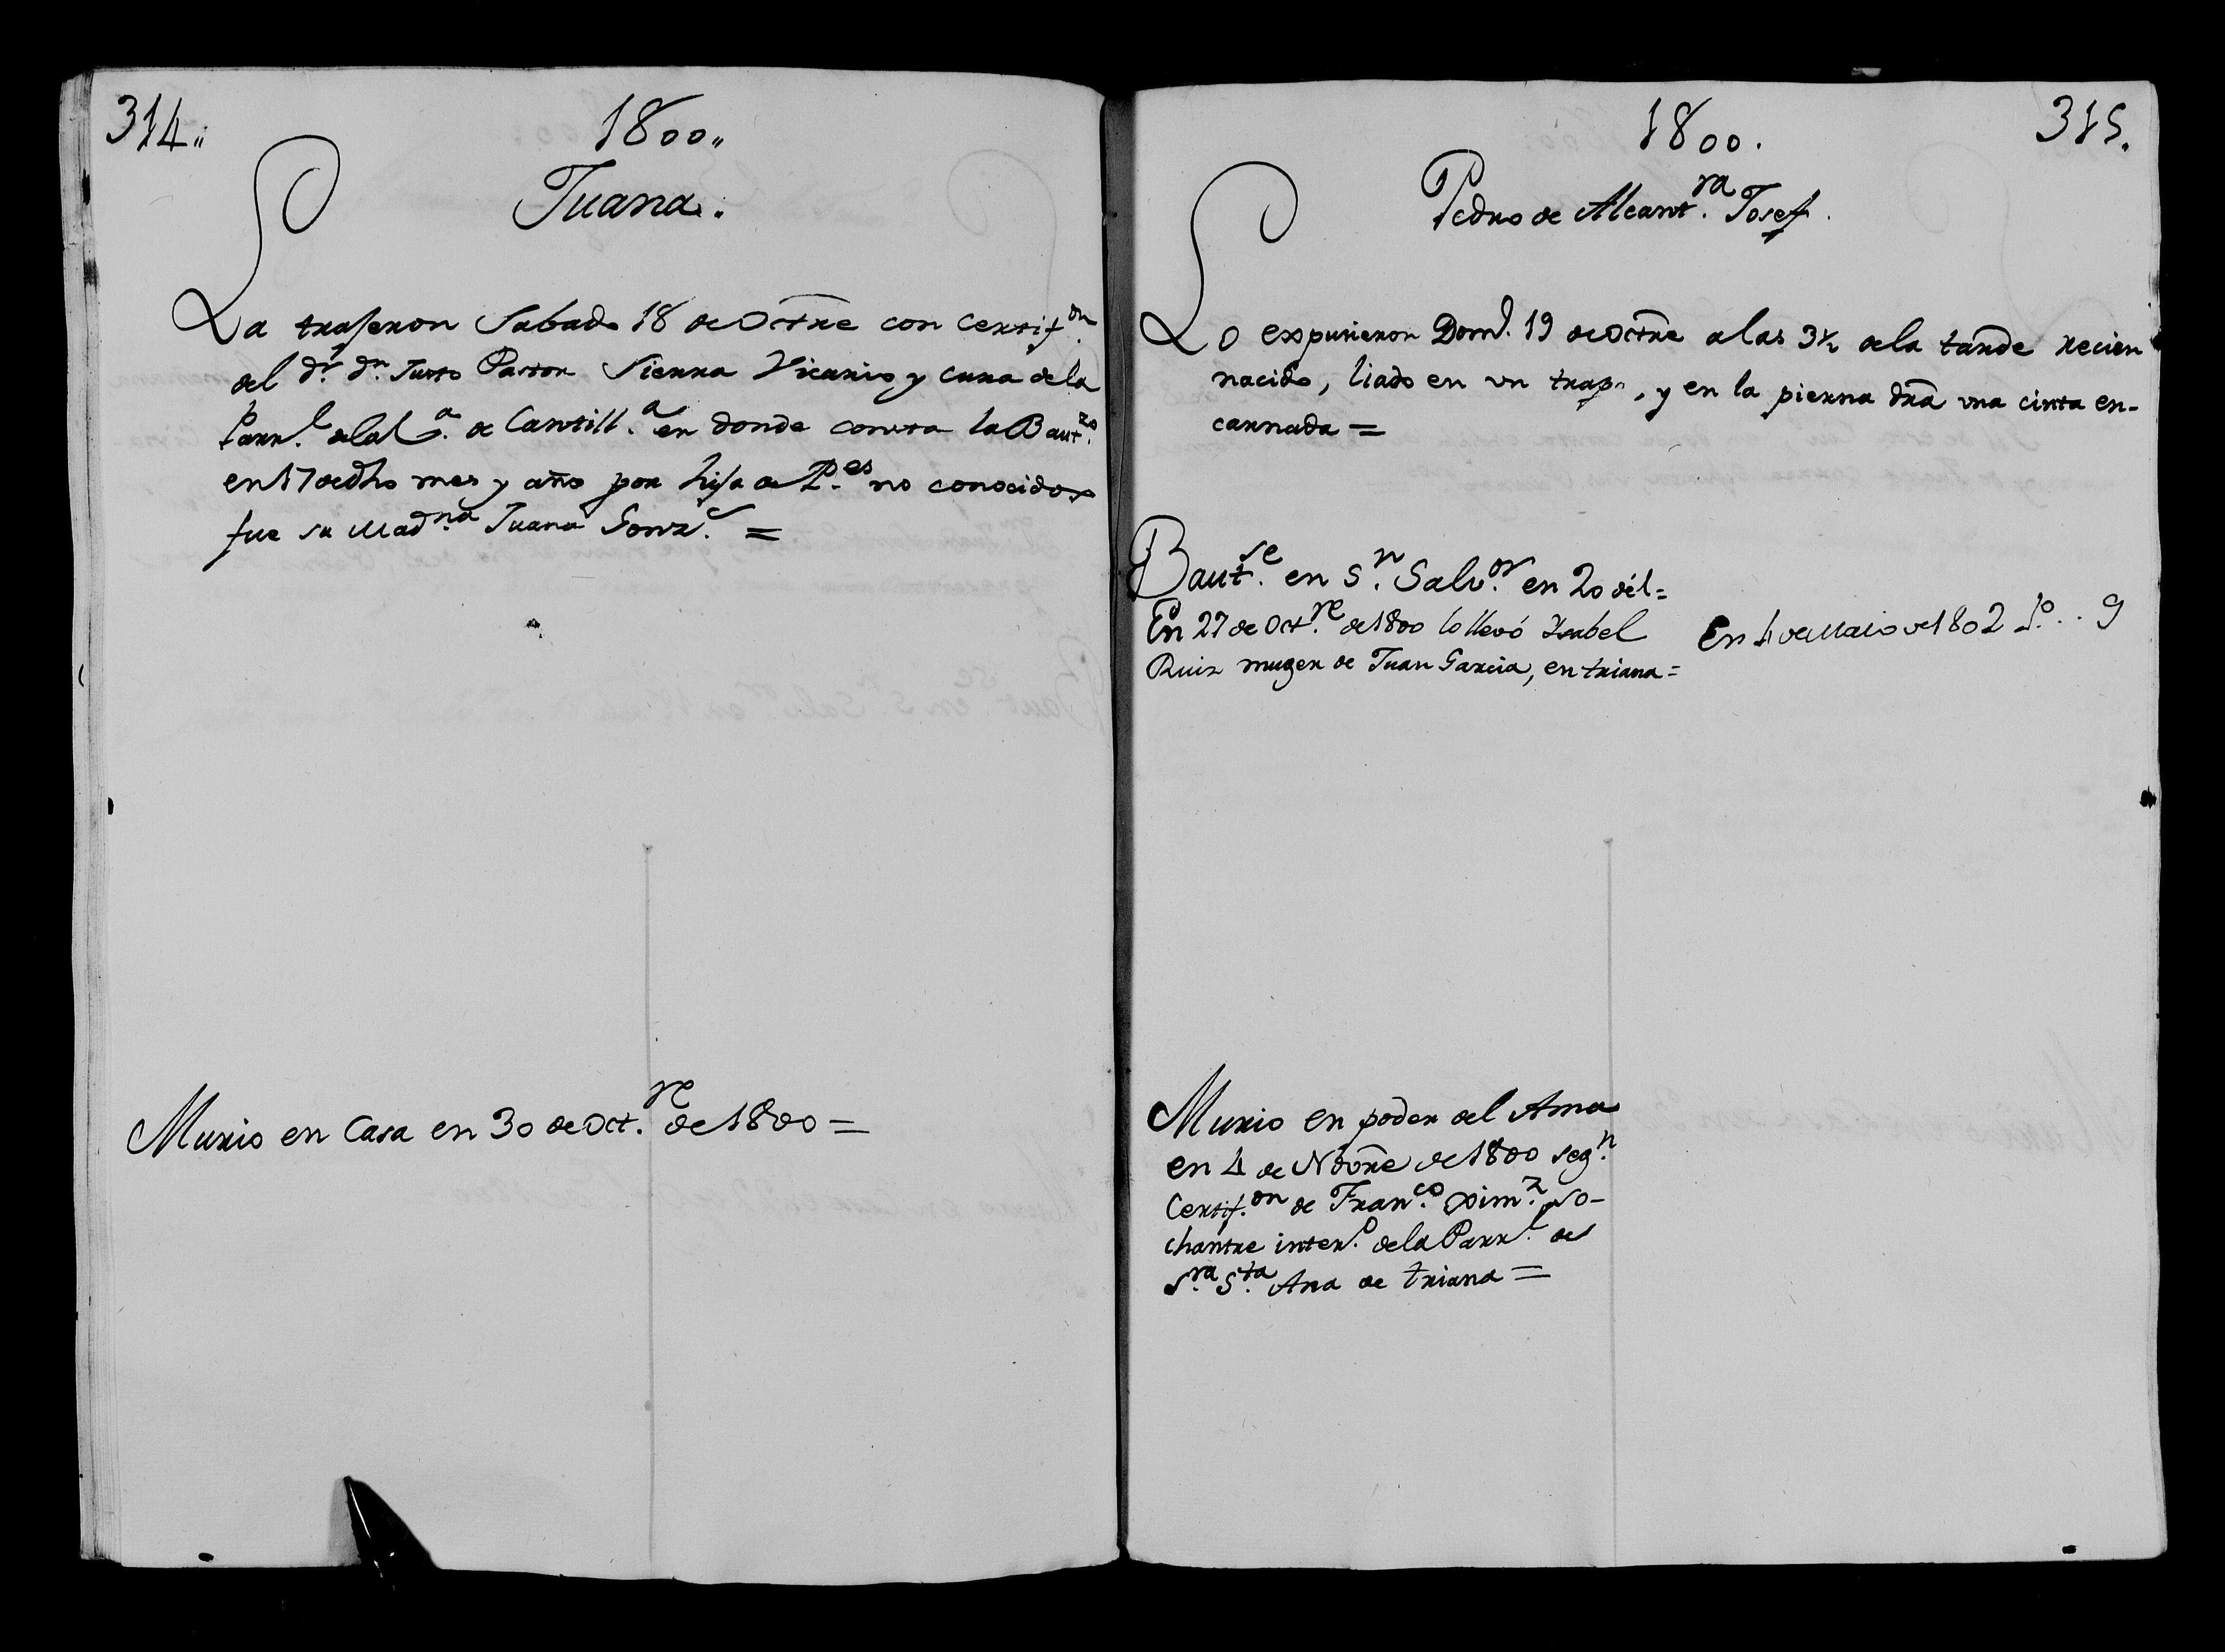 314.,
1800.,
Juana.
La trajeron Sabado 18 de Octre con certif.on
del dr. dn. Justo Pastor Sierra Vicario y cura de la
Parr.l de la V.a de Cantill.a en donde consta la Baut.zo
en 17 de dho mes y año por hija de P.es no conocidos
fue su Mad.na Juana Gonz.l =
Murio en Casa en 30 de Oct.re de 1800 =
1800.
315.
Pedro de Alcant.ra Josef.
Lo expusieron Dom.o 19 de Octre a las 3½ de la tarde recien
nacido, liado en un trapo, y en la pierna dra una cinta en-
carnada =
Baut.se en S.n Salv.or en 20 dél =
En 27 de Oct.re de 1800 lo llevó Ysabel
Ruiz muger de Juan Garcia, en triana =
En 4 de Maio de 1802 P.o .. 9
Murio en poder del Ama
en 4 de Nbore de 1800 seg.n
Certif.on de Fran.co Xim.z So-
chantre inter.o de la Parr.l de
S.ra S.ta Ana de triana =